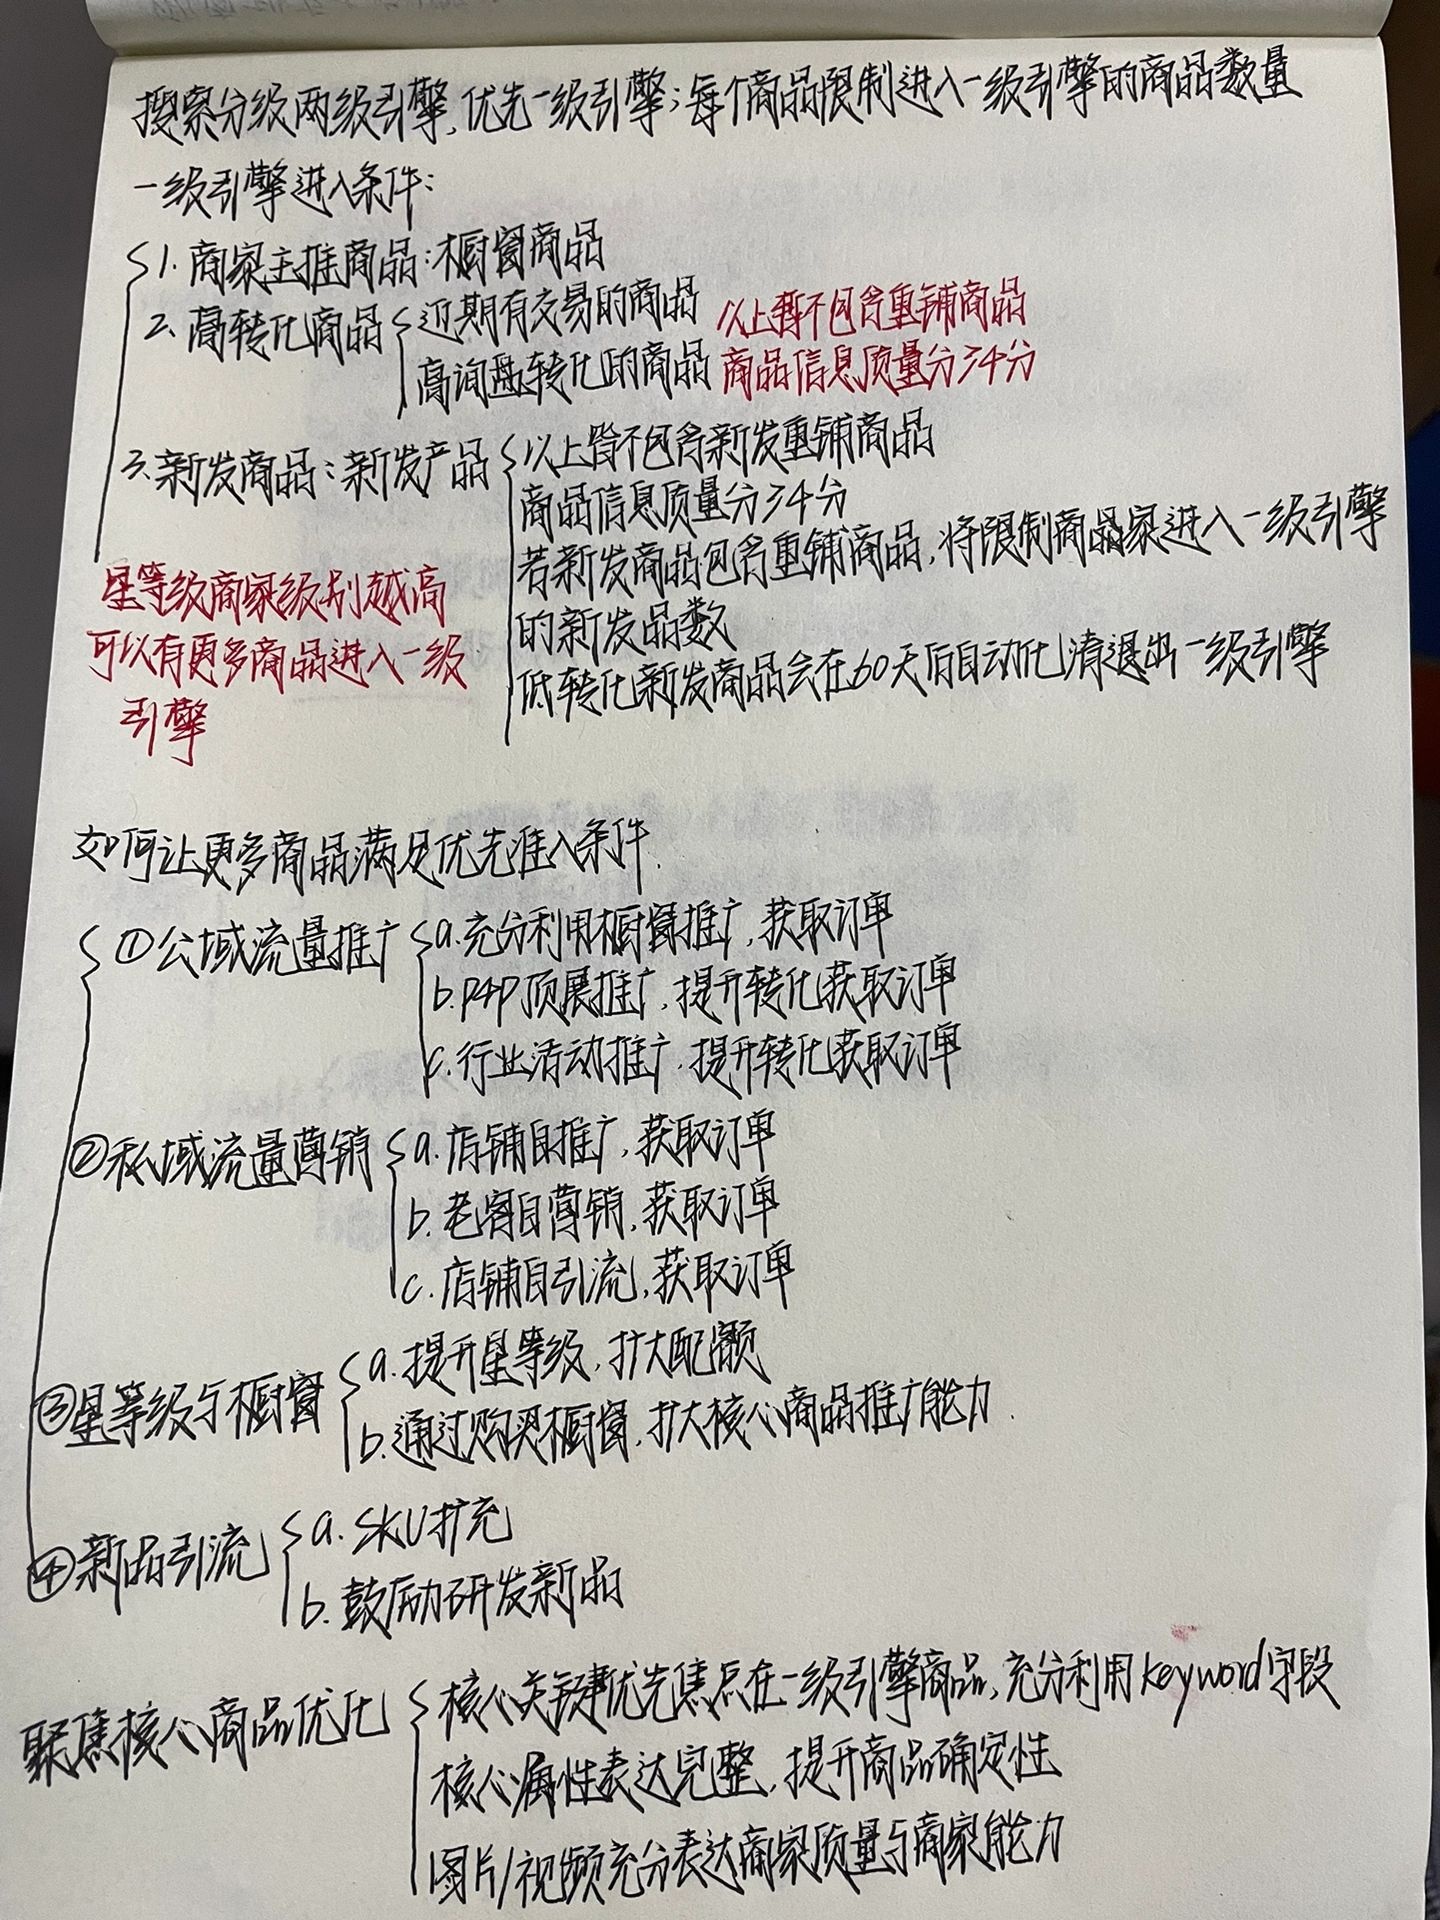 搜索分级两级引擎,优先一级引擎;每个商品限制进入一级引擎的商品数量
一级引擎进入条件:
1. 商家主推商品:橱窗商品
2. 高转化商品 近期有交易的商品 以上暂不包含重铺商品
高询盘转化的商品 商品信息质量分≥4分
3. 新发商品:新发产品 以上皆不包含新发重铺商品
商品信息质量分≥4分
若新发商品包含重铺商品,将限制商家进入一级引擎
的新发品数
低转化新发商品会在60天后自动化清退出一级引擎
星等级商家级别越高
可以有更多商品进入一级
引擎
如何让更多商品满足优先准入条件.
①公域流量推广 a.充分利用橱窗推广,获取订单
b.P4P顶展推广,提升转化获取订单
c.行业活动推广.提升转化获取订单
②私域流量营销 a.店铺自推广,获取订单
b.老客自营销,获取订单
c.店铺自引流,获取订单
③星等级与橱窗 a.提升星等级,扩大配额
b.通过购买橱窗,扩大核心商品推广能力.
④新品引流 a. SKU扩充
b. 鼓励研发新品
聚焦核心商品优化 核心关键优先焦点在一级引擎商品,充分利用keyword字段
核心属性表达完整,提升商品确定性
图片/视频充分表达商家质量与商家能力